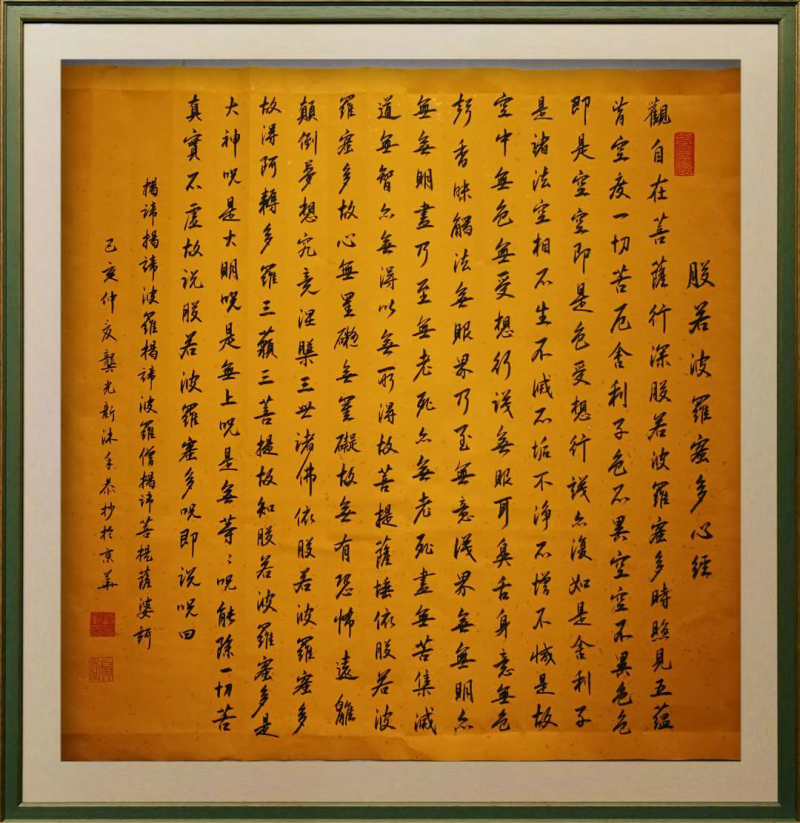 般若波羅蜜多心經
觀自在菩薩行深般若波羅蜜多時照見五蘊
皆空度一切苦厄舍利子色不異空空不異色色
即是空空即是色受想行識亦復如是舍利子
是諸法空相不生不滅不垢不淨不增不減是故
空中無色無受想行識無眼耳鼻舌身意無色
聲香味觸法無眼界乃至無意識界無無明亦
無無明盡乃至無老死亦無老死盡無苦集滅
道無智亦無得以無所得故菩提薩埵依般若波
羅蜜多故心無罣礙無罣礙故無有恐怖遠離
顛倒夢想究竟涅槃三世諸佛依般若波羅蜜多
故得阿耨多羅三藐三菩提故知般若波羅蜜多是
大神咒是大明咒是無上咒是無等〻咒能除一切苦
真實不虛故說般若波羅蜜多咒即說咒曰
揭諦揭諦波羅揭諦波羅僧揭諦菩提薩婆訶
己亥仲夏龔光新沐手恭抄於京華